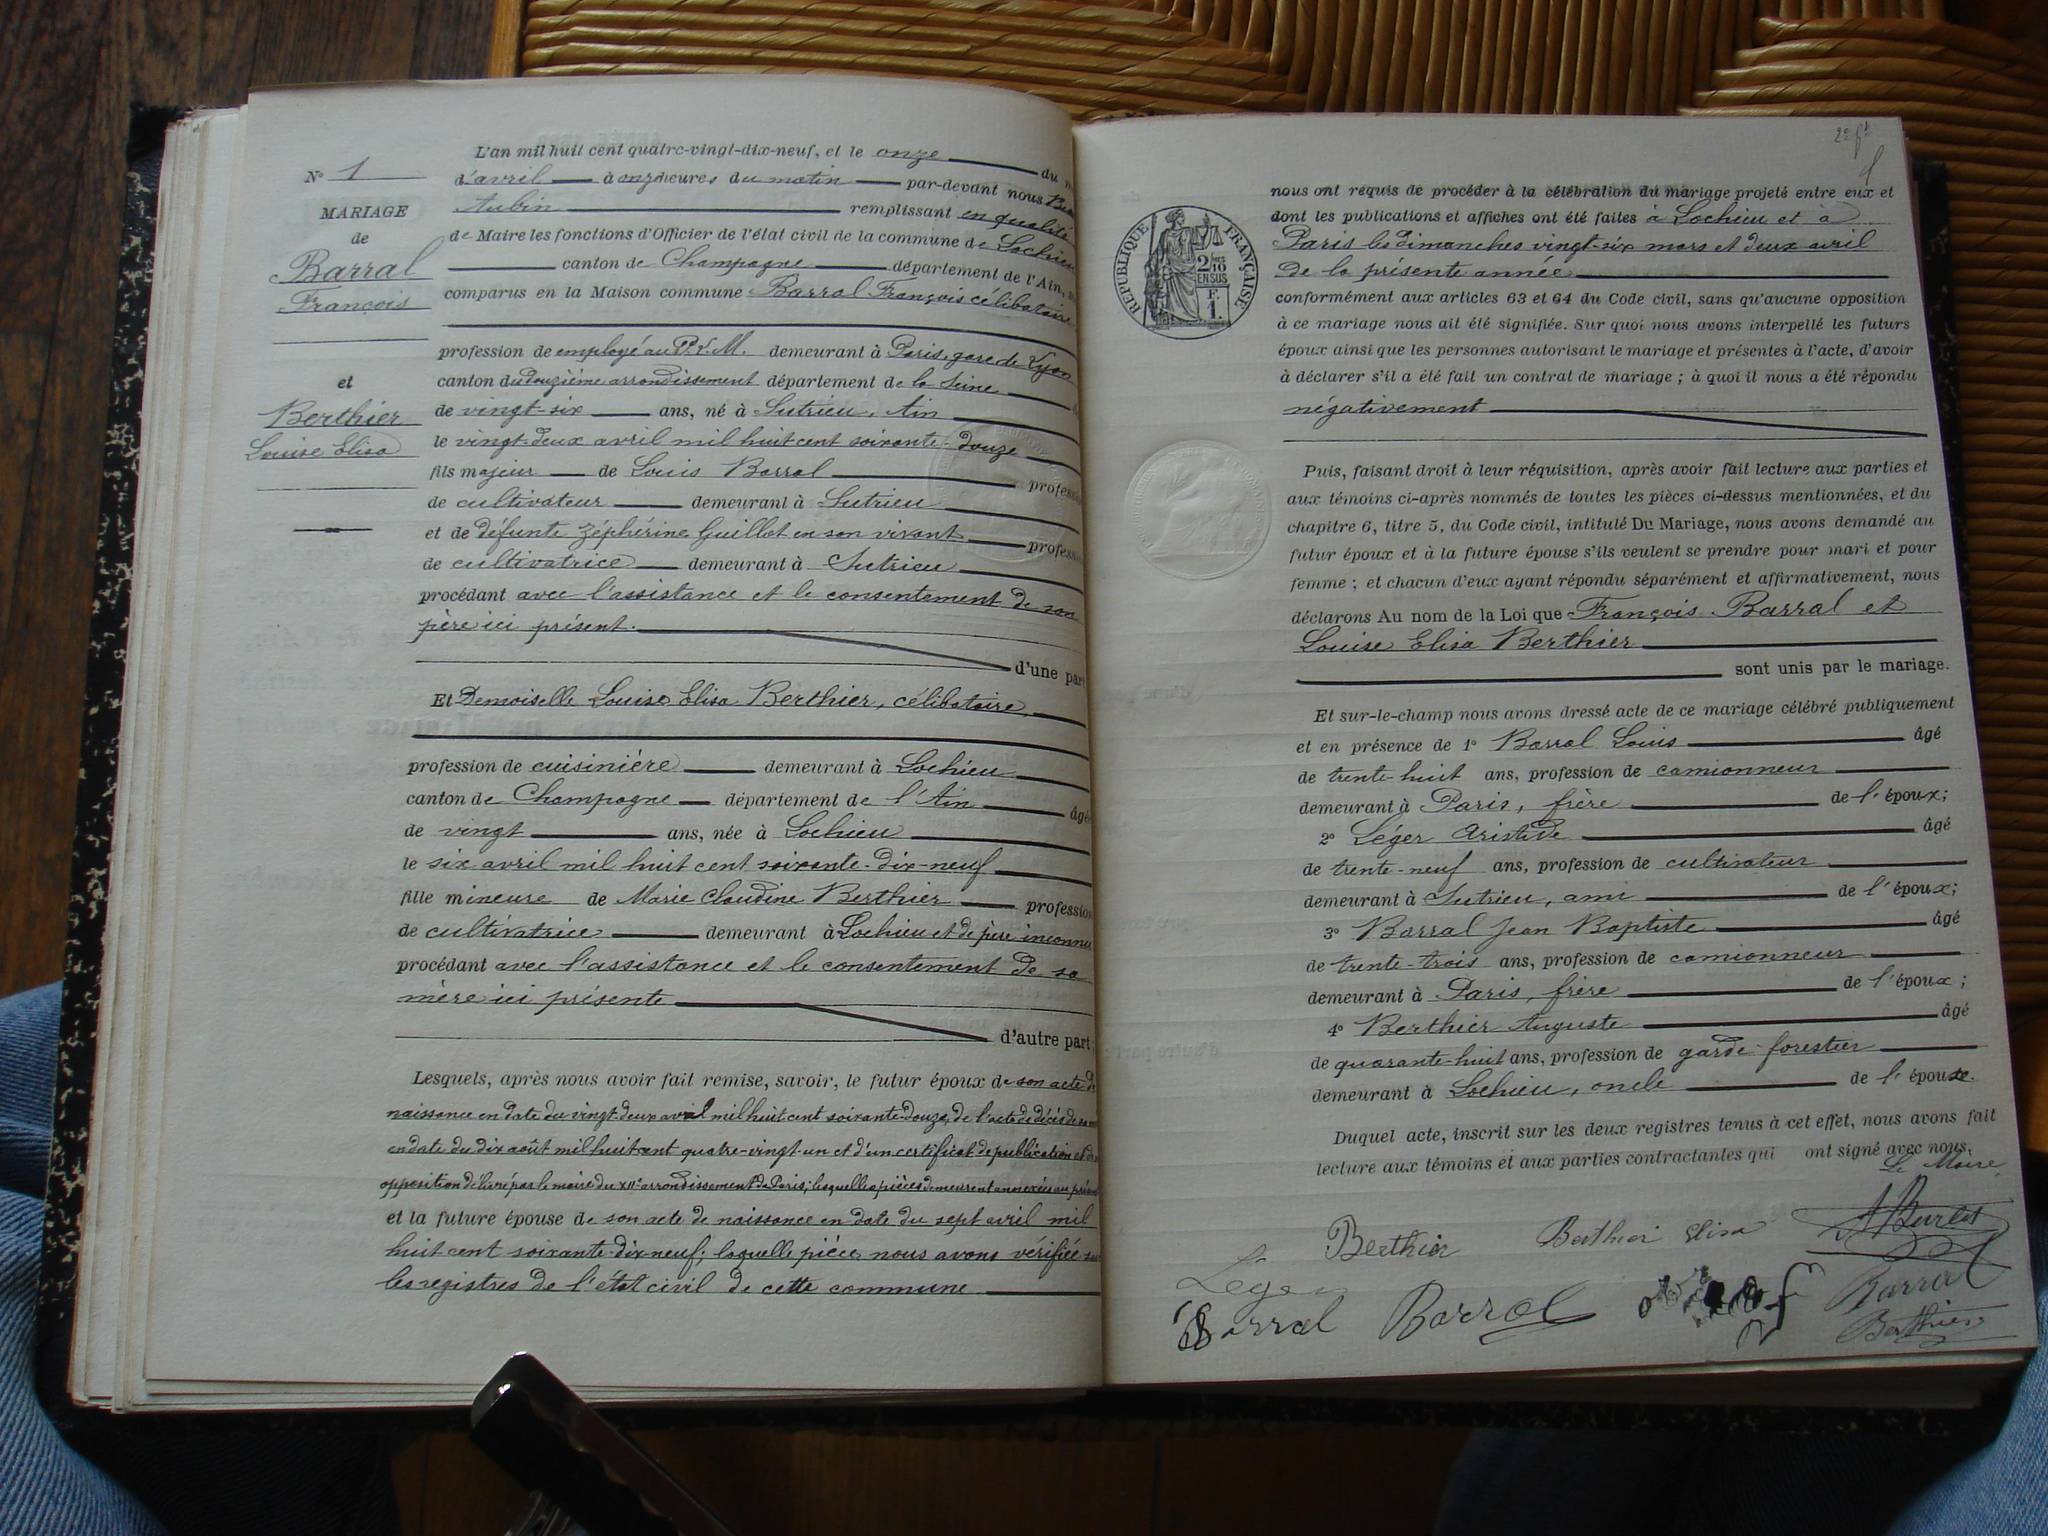 L'an mil huit cent quatre-vingt-dix-neuf, et le onze du
d'avril à onze heures du matin par-devant nous
Aubin remplissant en qualité
de Maire les fonctions d'Officier de l'état civil de la commune de Lochieu
canton de Champagne département de l'Ain,
comparus en la Maison commune Barral François célibataire
profession de employé au P.L.M. demeurant à Paris, gare de Lyon
canton du douzième arrondissement département de la Seine
de vingt-six ans, né à Sutrieu, Ain
le vingt-deux avril mil huit cent soixante-douze
fils majeur de Louis Barral profess
de cultivateur demeurant à Sutrieu
et de défunte Zéphérine Guillot en son vivant profess
de cultivatrice demeurant à Sutrieu
procédant avec l'assistance et le consentement de son
père ici présent.
d'une part
Et Demoiselle Louise Elisa Berthier, célibataire,
profession de cuisinière demeurant à Lochieu
canton de Champagne département de l'Ain âgé
de vingt ans, née à Lochieu
le six avril mil huit cent soixante-dix-neuf
fille mineure de Marie Claudine Berthier profession
de cultivatrice demeurant à Lochieu et de père inconnu
procédant avec l'assistance et le consentement de sa
mère ici présente
d'autre part ;
Lesquels, après nous avoir fait remise, savoir, le futur époux de son acte de
naissance en date du vingt-deux avril mil huit cent soixante-douze, de l'acte de décès de sa
en date du dix août mil huit cent quatre-vingt-un et d'un certificat de publication et de
opposition délivré par le maire du XIIe arrondissement de Paris; lesquelles pièces demeurent annexées au
et la future épouse de son acte de naissance en date du sept avril mil
huit cent soixante-dix-neuf; laquelle pièce nous avons vérifiée
les registres de l'état civil de cette commune
N° 1
MARIAGE
de
Barral
François
et
Berthier
Louise Elisa
nous ont requis de procéder à la célébration du mariage projeté entre eux et
dont les publications et affiches ont été faites à Lochieu et à
Paris les dimanches vingt-six mars et deux avril
de la présente année
conformément aux articles 63 et 64 du Code civil, sans qu'aucune opposition
à ce mariage nous ait été signifiée. Sur quoi nous avons interpellé les futurs
époux ainsi que les personnes autorisant le mariage et présentes à l'acte, d'avoir
à déclarer s'il a été fait un contrat de mariage ; à quoi il nous a été répondu
négativement
Puis, faisant droit à leur réquisition, après avoir fait lecture aux parties et
aux témoins ci-après nommés de toutes les pièces ci-dessus mentionnées, et du
chapitre 6, titre 5, du Code civil, intitulé Du Mariage, nous avons demandé au
futur époux et à la future épouse s'ils veulent se prendre pour mari et pour
femme ; et chacun d'eux ayant répondu séparément et affirmativement, nous
déclarons Au nom de la Loi que François Barral et
Louise Elisa Berthier
sont unis par le mariage.
Et sur-le-champ nous avons dressé acte de ce mariage célébré publiquement
et en présence de 1° Barral Louis âgé
de trente-huit ans, profession de camionneur
demeurant à Paris, frère de l'époux;
2° Léger Aristide âgé
de trente-neuf ans, profession de cultivateur
demeurant à Sutrieu, ami de l'époux;
3° Barral Jean Baptiste âgé
de trente-trois ans, profession de camionneur
demeurant à Paris, frère de l'époux ;
4° Berthier Auguste âgé
de quarante-huit ans, profession de garde-forestier
demeurant à Lochieu, oncle de l'épouse.
Duquel acte, inscrit sur les deux registres tenus à cet effet, nous avons fait
lecture aux témoins et aux parties contractantes qui ont signé avec nous.
Le Maire
Berthier Berthier Elisa A Burlet
Léger
Barral Barral Barral
Berthier
RÉPUBLIQUE FRANÇAISE
2/10
EN SUS
F.
1.